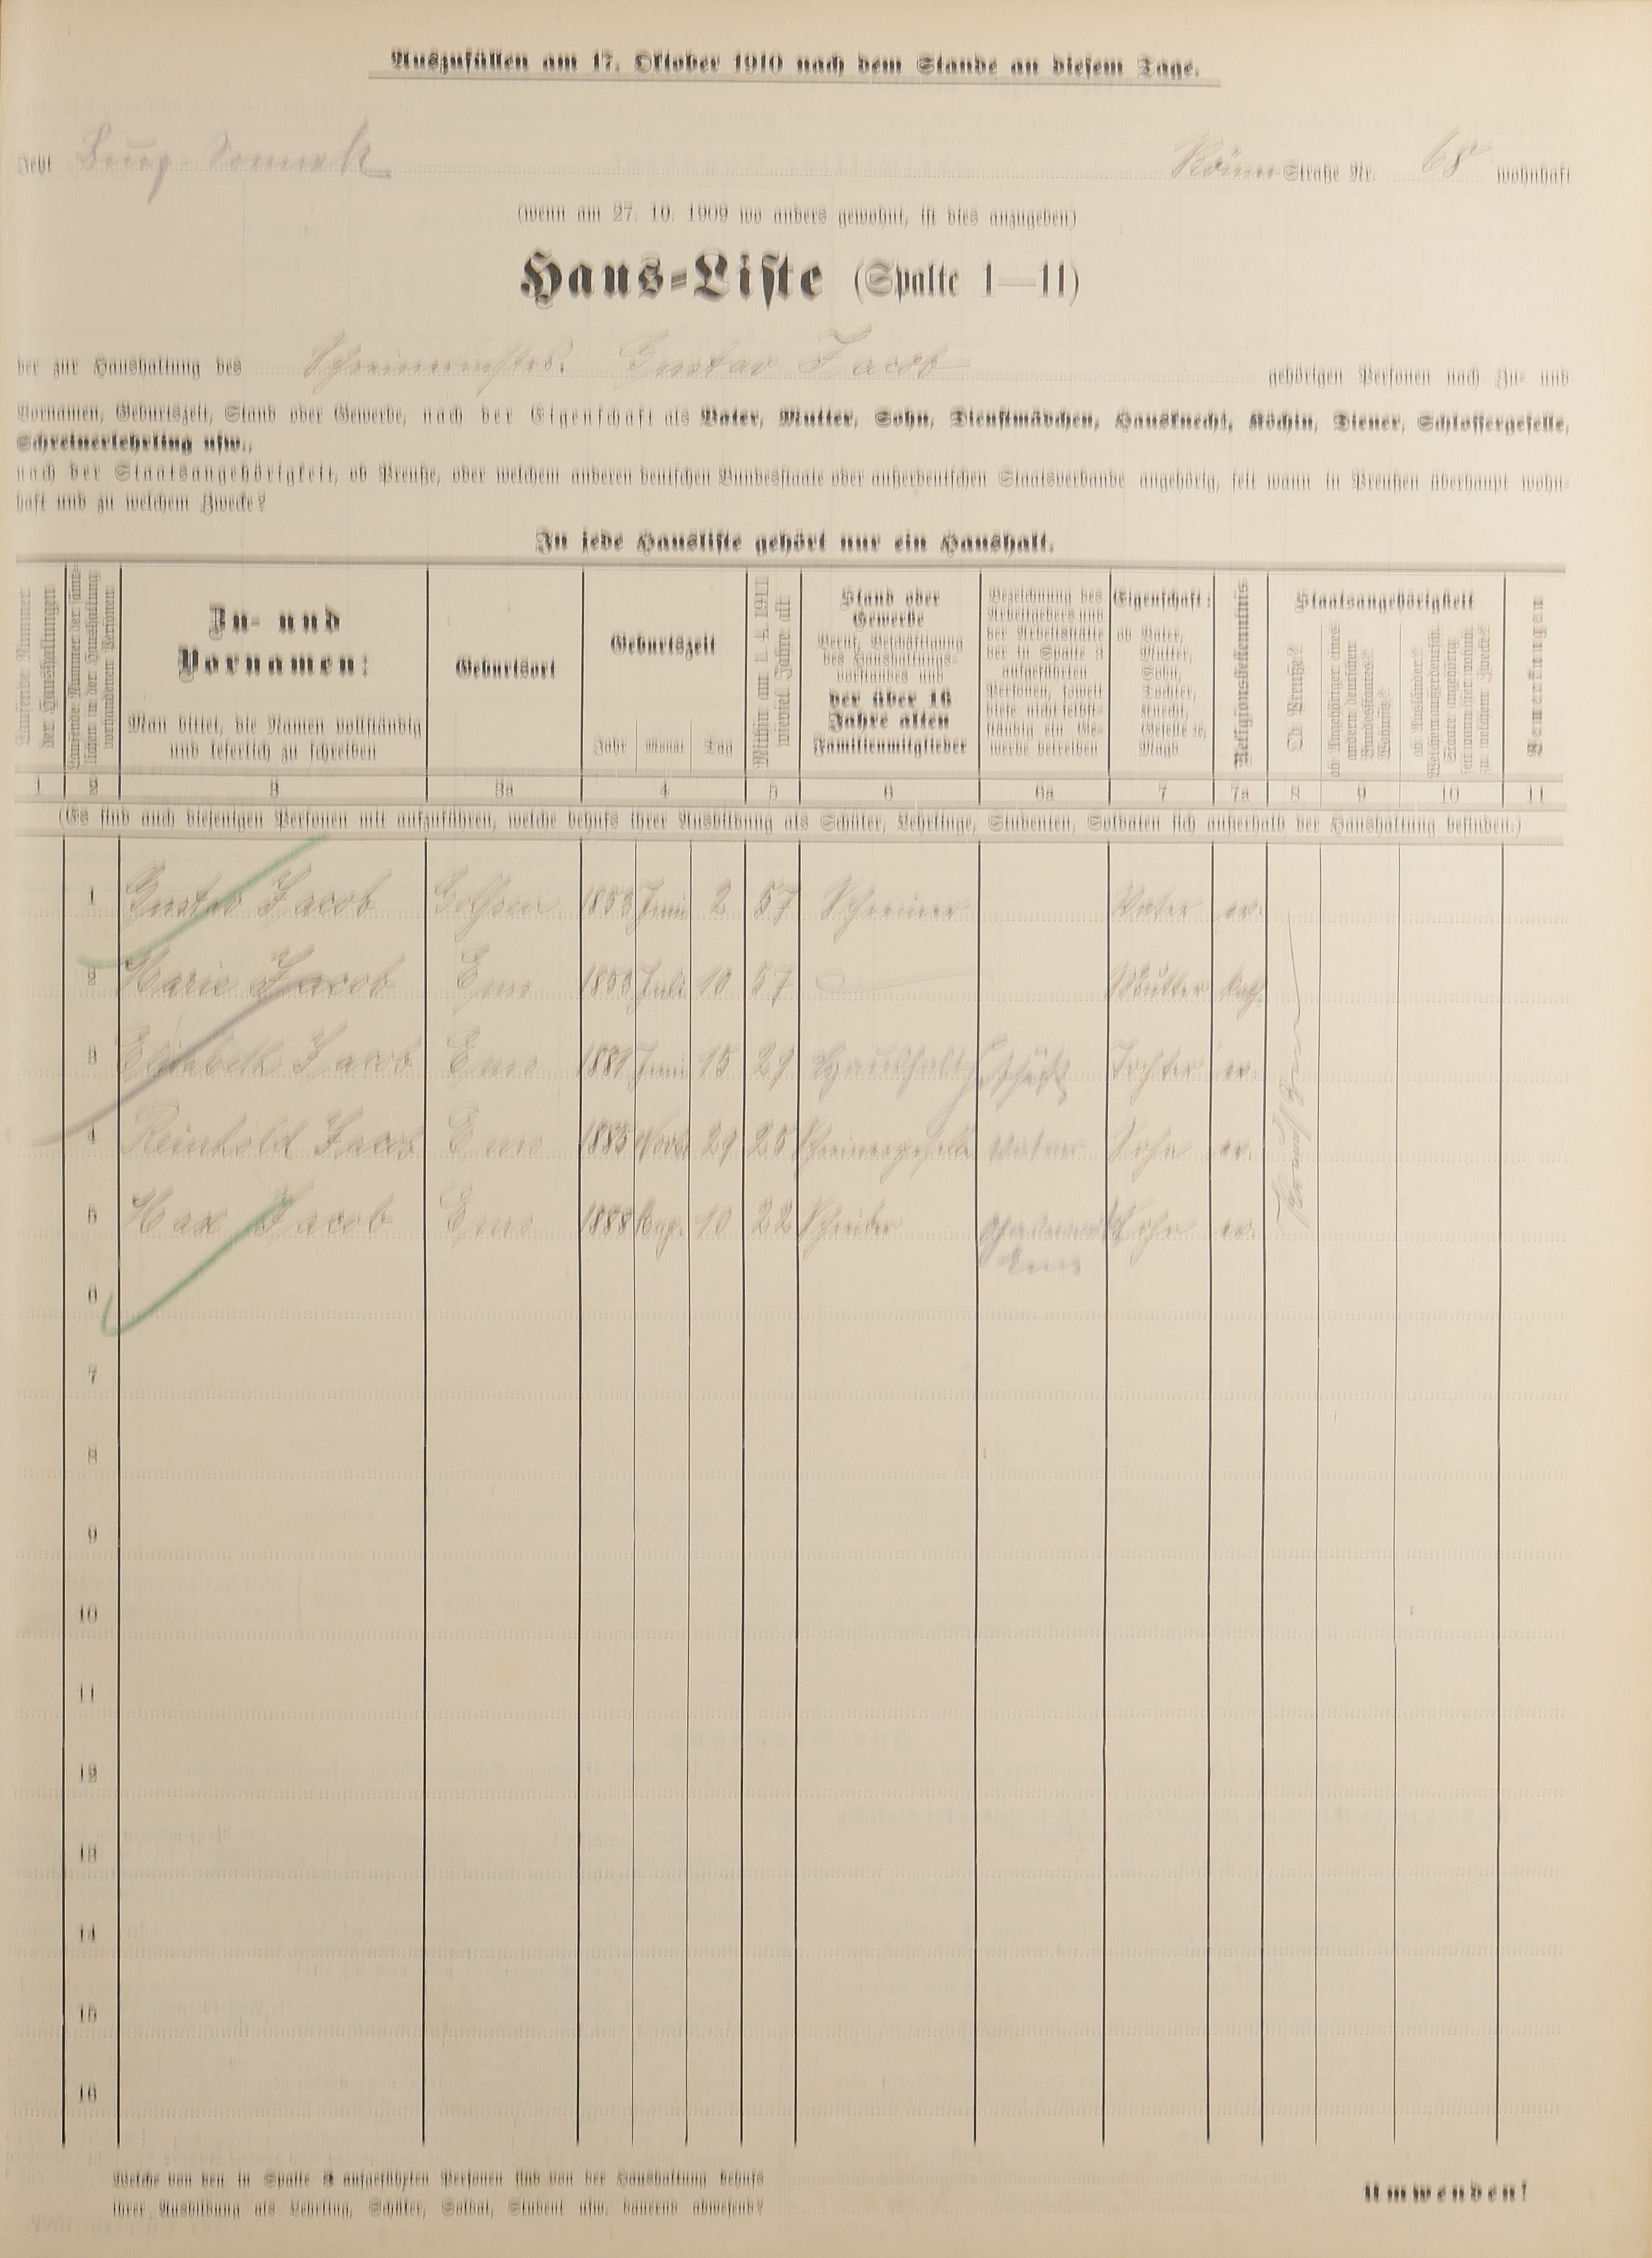 Auszufüllen am 17. Oktober 1910 nach dem Stande an diesem Tage.
Jetzt Burg Sonneck Römer Straße Nr. 68 wohnhaft
(wenn am 27. 10. 1909 wo anders gewohnt, ist dies anzugeben)
Haus-Liste (Spalte 1—11)
der zur Haushaltung des Schreinermstrs. Gustav Jacob gehörigen Personen nach Zu- und
Vornamen, Geburtszeit, Stand oder Gewerbe, nach der Eigenschaft als Vater, Mutter, Sohn, Dienstmädchen, Hausknecht, Köchin, Diener, Schlossergeselle,
Schreinerlehrling usw.,
nach der Staatsangehörigkeit, ob Preuße, oder welchem anderen deutschen Bundesstaate oder außerdeutschen Staatsverbande angehörig, seit wann in Preußen überhaupt wohn-
haft und zu welchem Zwecke?
In jede Hausliste gehört nur ein Haushalt.
Laufende Nummer
der Haushaltungen
Laufende Nummer der sämt-
lichen in der Haushaltung
vorhandenen Personen
Zu- und
Vornamen:
Man bittet, die Namen vollständig
und leserlich zu schreiben
Geburtsort
Geburtszeit
Jahr Monat Tag
Mithin am 1. 4. 1911
wieviel Jahre alt
Stand oder
Gewerbe
Beruf, Beschäftigung
des Haushaltungs-
vorstandes und
der über 16
Jahre alten
Familienmitglieder
Bezeichnung des
Arbeitgebers und
der Arbeitsstätte
der in Spalte 3
aufgeführten
Personen, soweit
diese nicht selbst-
ständig ein Ge-
werbe betreiben
Eigenschaft:
ob Vater,
Mutter,
Sohn,
Tochter,
Knecht,
Geselle rc.
Magd
Religionsbekenntnis
Staatsangehörigkeit
Ob Preuße?
ob Angehöriger eines
andern deutschen
Bundesstaates?
Wonaus?
ob Ausländer?
Welchem außerdeutsch.
Staate angehörig
seit wann hier wohnh.
zu welchem Zwecke?
Bemerkungen
1 2 3 3a 4 5 6 6a 7 7a 8 9 10 11
(Es sind auch diejenigen Personen mit aufzuführen, welche behufs ihrer Ausbildung als Schüler, Lehrlinge, Studenten, Soldaten sich außerhalb der Haushaltung befinden.)
1 Gustav Jacob Golssen 1853 Juni 2 57 Schreiner Vater ev.
2 Marie Jacob Ems 1853 Juli 10 57 Mutter kath.
3 Elisabeth Jacob Ems 1881 Juni 15 29 Tochter ev.
4 Reinhold Jacob Ems 1885 Novb. 29 25 Schreinergeselle Vater Sohn ev.
5 Max Jacob Ems 1888 Aug. 10 22 Schreiber Sohn ev.
Ems
6
7
8
9
10
11
12
13
14
15
16
Welche von den in Spalte 3 aufgeführten Personen sind von der Haushaltung behufs
ihrer Ausbildung als Lehrling, Schüler, Soldat, Student usw. dauernd abwesend?
Umwenden!